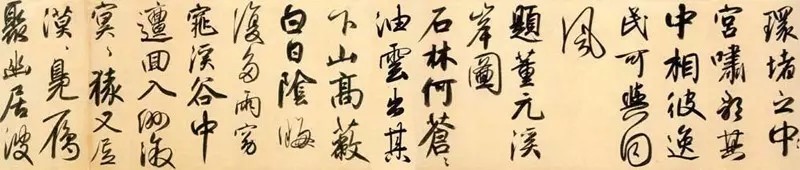 環堵之中
宮嘯歌其
中相彼逸
民可與同
風
題董元溪
岸圖
石林何蒼〻
油雲出其
下山高蔽
白日陰晦
復多雨窈
窕溪谷中
邅回入洲漵
冥〻猿又居
漠〻鳧雁
聚幽居